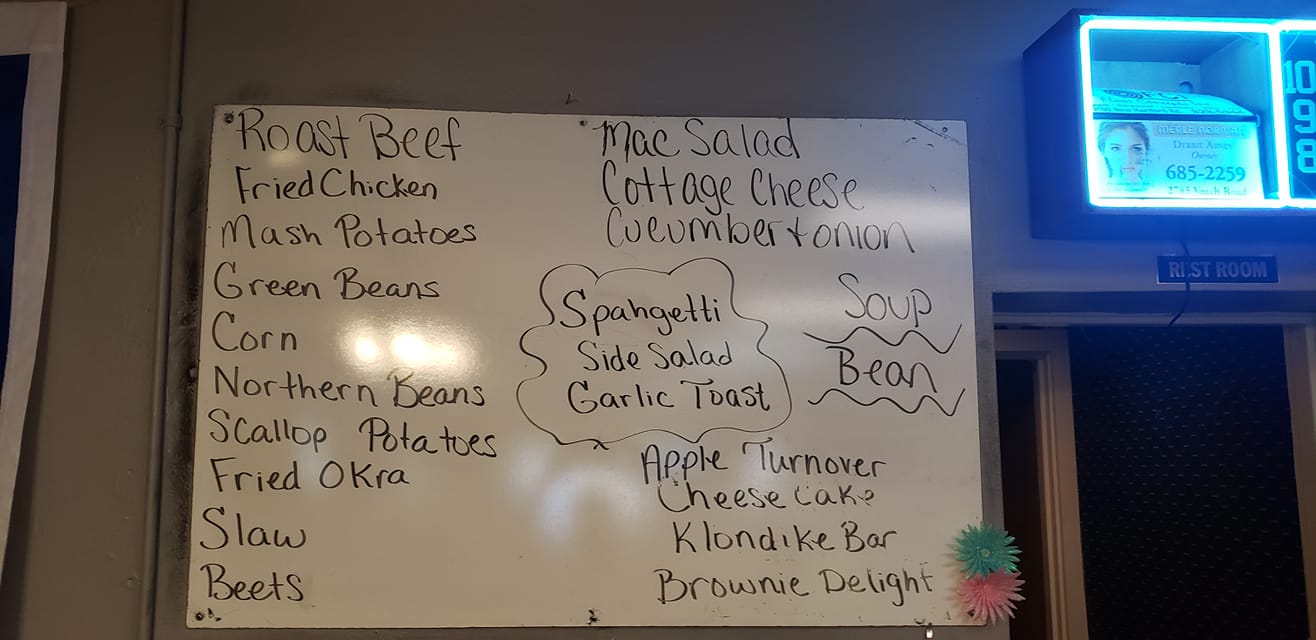 Roast Beef
Fried Chicken
Mash Potatoes
Green Beans
Corn
Northern Beans
Scallop Potatoes
Fried Okra
Slaw
Beets
Mac Salad
Cottage Cheese
Cucumber + onion
Spahgetti
Side Salad
Garlic Toast
Soup
Bean
Apple Turnover
Cheese Cake
Klondike Bar
Brownie Delight
MERLE NORMAN
DEBBIE ABNEY
Owner
685-2259
10
9
8
REST ROOM